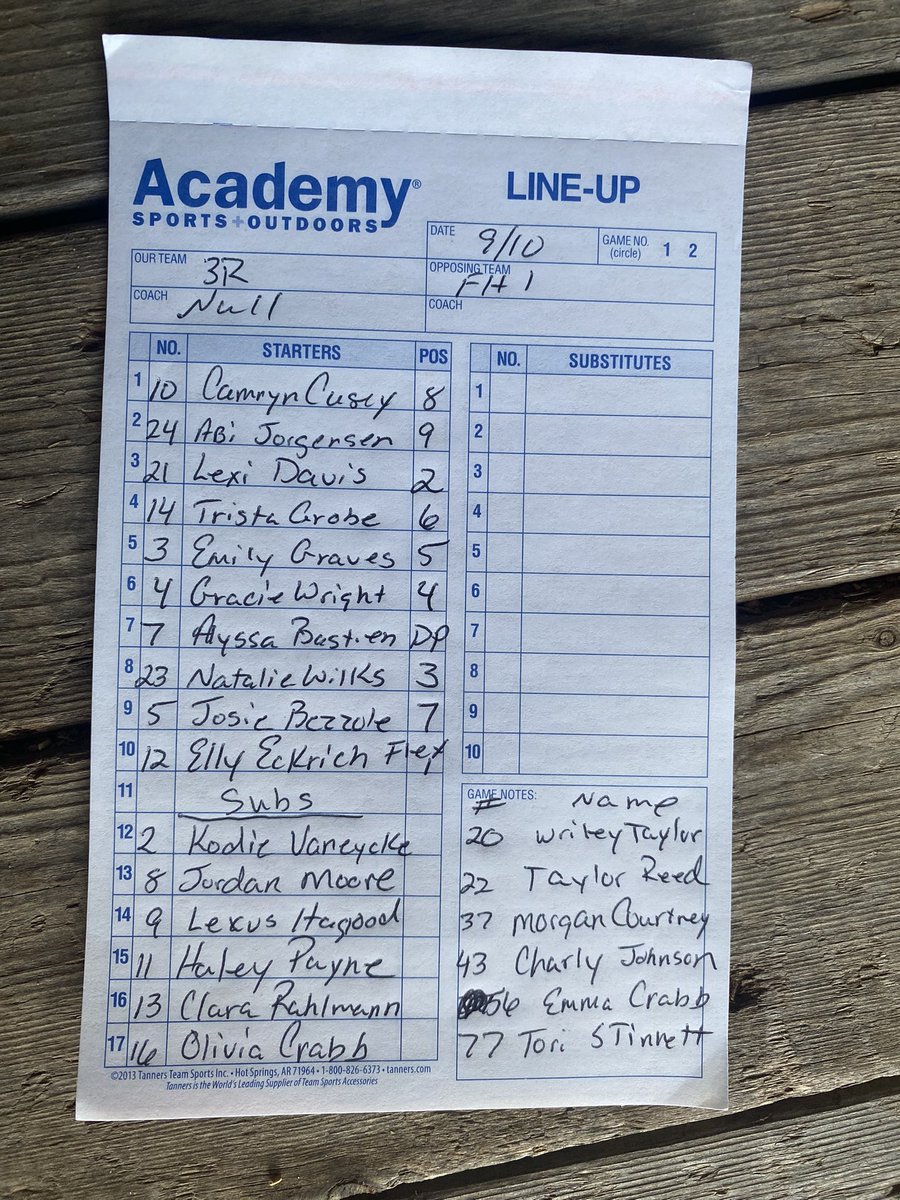 Academy®
SPORTS+OUTDOORS
LINE-UP
DATE 9/10
GAME NO. (circle) 1 2
OUR TEAM 3R
OPPOSING TEAM FH 1
COACH Null
COACH
NO. STARTERS POS
1 10 Camryn Cusey 8
2 24 ABi Jorgensen 9
3 21 Lexi Davis 2
4 14 Trista Grobe 6
5 3 Emily Graves 5
6 4 Gracie Wright 4
7 7 Alyssa Bastien DP
8 23 Natalie Wilks 3
9 5 Josie Bezzole 7
10 12 Elly Eckrich Flex
11 Subs
12 2 Kodie Vaneycke
13 8 Jordan Moore
14 9 Lexus Hagood
15 11 Haley Payne
16 13 Clara Rahlmann
17 16 Olivia Crabb
NO. SUBSTITUTES
1
2
3
4
5
6
7
8
9
10
GAME NOTES:
# Name
20 Wriley Taylor
22 Taylor Reed
37 Morgan Courtney
43 Charly Johnson
56 Emma Crabb
77 Tori STinnett
©2013 Tanners Team Sports Inc. • Hot Springs, AR 71964 • 1-800-826-6373 • tanners.com
Tanners is the World's Leading Supplier of Team Sports Accessories